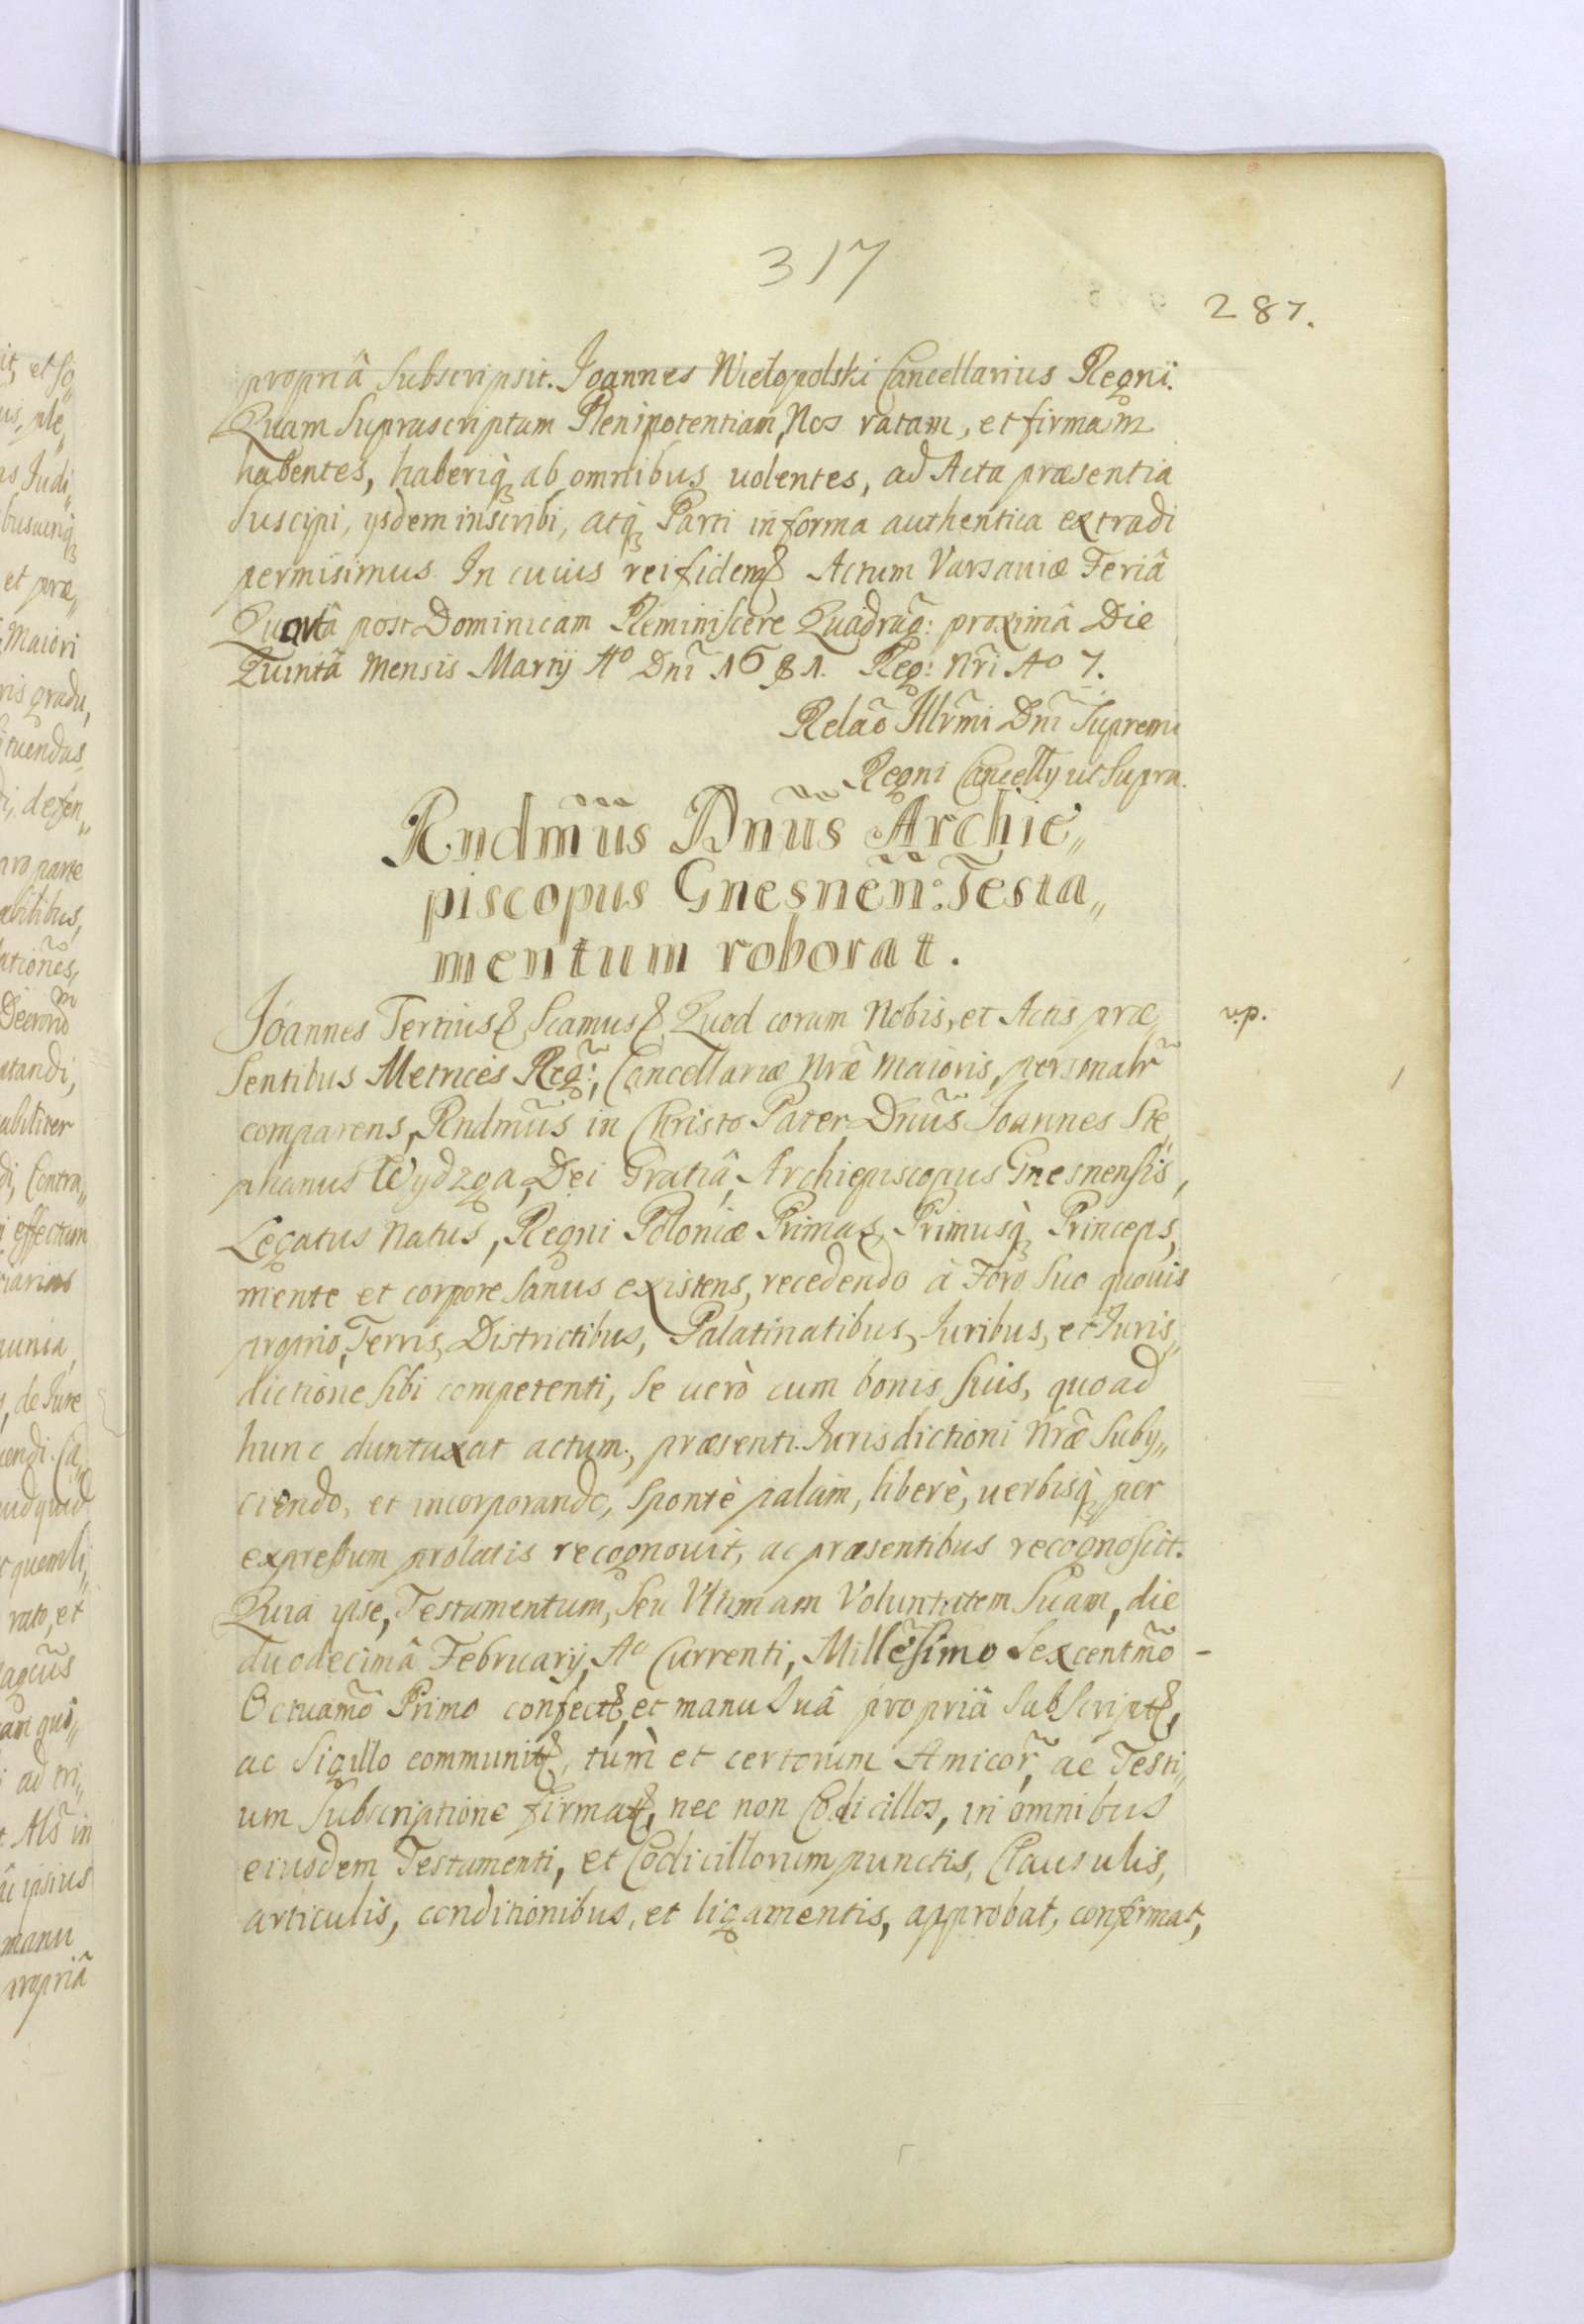 317
287.
propriâ Subscripsit. Joannes Wielopolski Cancellarius Regni.
Quam Suprascriptam Plenipotentiam, Nos ratam, et firmam
habentes, haberiq̀ ab omnibus uolentes, ad Acta præsentia
Suscipi, ysdem inscribi, atq̀ Parti in forma authentica extradi
permisimus. In cuius rei fidem& Actum Varsaviæ Feriâ
Quartâ post Dominicam Reminiscere Quadrag̃: proximâ Die
Quintâ Mensis Martij Aº Dnĩ 1681. Reg: Nrĩ Aº 7.
Relaõ Illrm̃i Dnĩ Supremi
Regni Cancellrij ut Supra.
Rndmũs Dnũs Archie„
piscopus Gnesnẽn: Testa„
mentum roborat.
Joannes Tertius& Scamus& Quod coram Nobis, et Actis præ„
Sentibus Metrices Reg̃:, Cancellariæ Nræ̃ Maioris, personalr̃
comparens, Rndmũs in Christo Pater Dnũs Joannes Ste„
phanus Wydzga, Dei Gratiâ, Archiepiscopus Gnesnensis,
Legatus Natus, Regni Poloniæ Primas, Primusq̀ Princeps,
mente et corpore Sanus existens, recedendo à Foro Suo quouis
proprio, Terris, Districtibus, Palatinatibus, Juribus, et Juris„
dictione Sibi competenti, Se uerò cum bonis suis, quoad
hunc duntaxat actum, præsenti Jurisdictioni Nræ̃ Suby„
ciendo, et incorporando, Spontè palàm, liberè, uerbisq̀ per
expressum prolatis recognouit, ac præsentibus recognoscit.
Quia ipse, Testamentum, Seu Vltimam Voluntatem Suam, die
duodecimâ Februarij, Aº Currenti, Millẽsimo Sexcentm̃o
Octuam̃o Primo confect&, et manu Suâ propriâ Subscript&,
ac Sigillo communit&, tùm et certorum Amicor̃, ac Testi„
um Subscriptione firmat&, nec non Codicillos, in omnibus
eiusdem Testamenti, et Codicillorum punctis, Clausulis,
articulis, conditionibus, et ligamentis, approbat, confirmat,